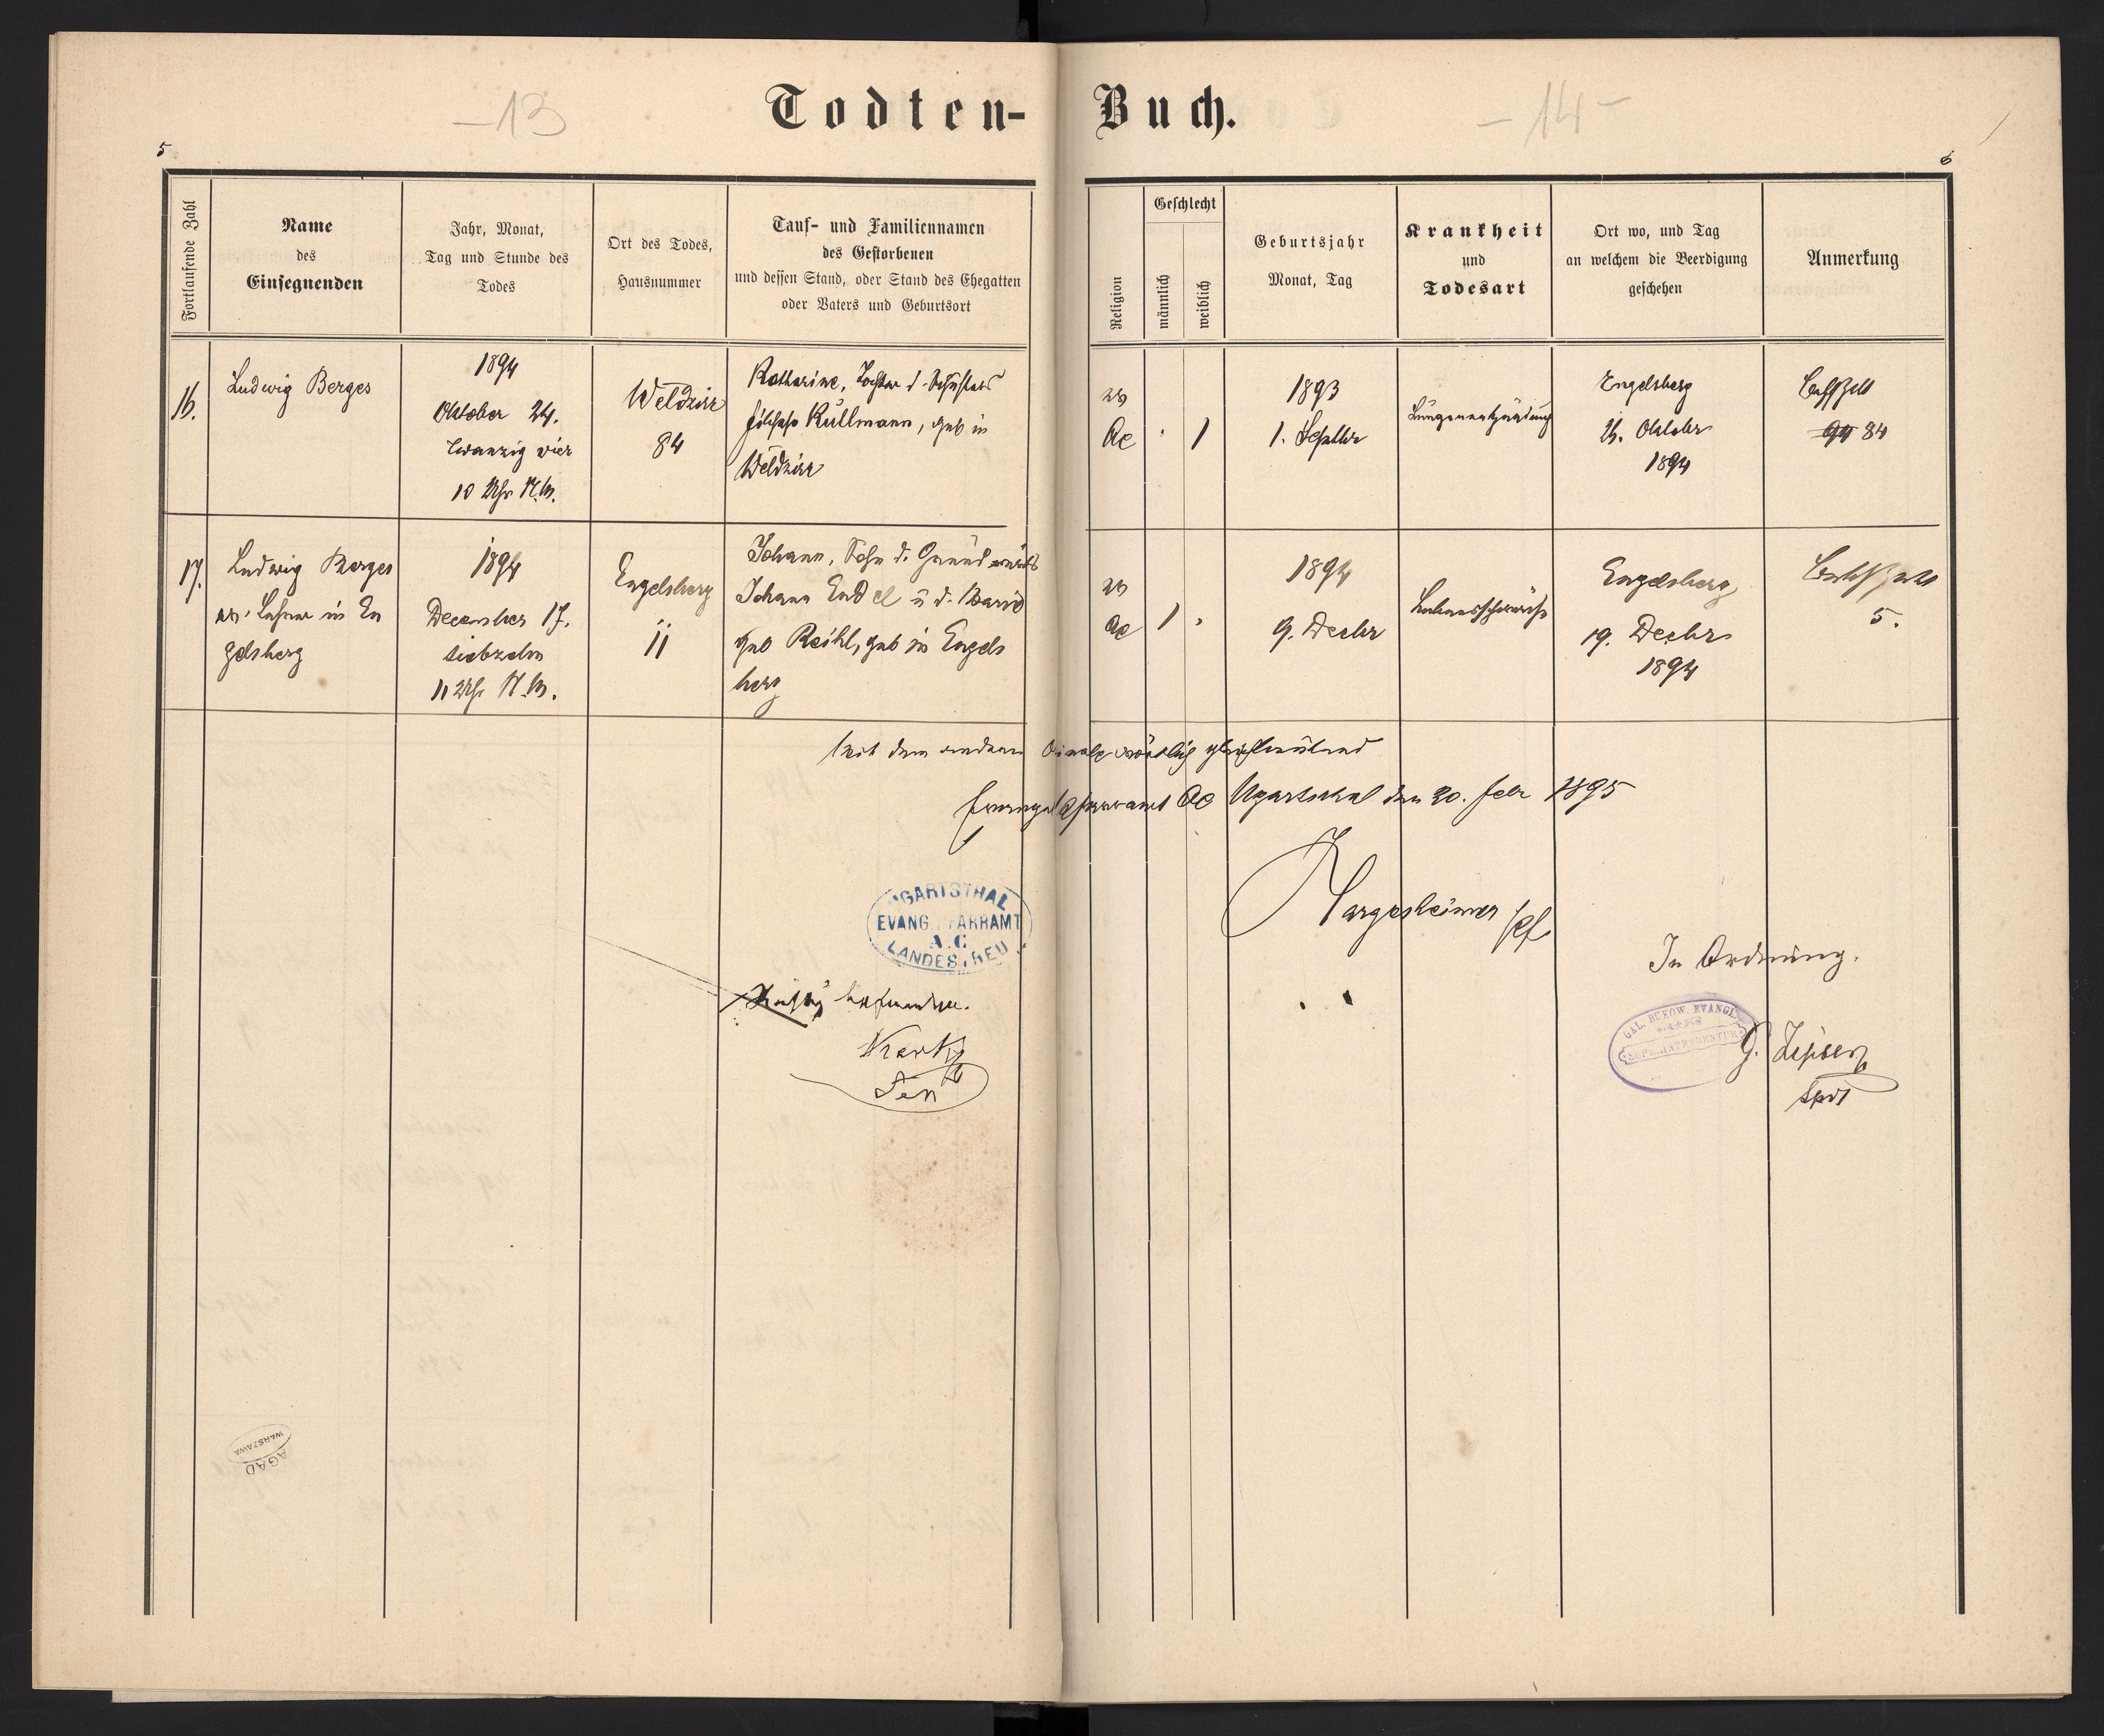 -13
Todten-Buch.
-14-
5
6
Fortlaufende Zahl
Name
des
Einsegnenden
Jahr, Monat,
Tag und Stunde des
Todes
Ort des Todes,
Hausnummer
Tauf- und Familiennamen
des Gestorbenen
und dessen Stand, oder Stand des Ehegatten
oder Vaters und Geburtsort
Religion
Geschlecht
männlich
weiblich
Geburtsjahr
Monat, Tag
Krankheit
und
Todesart
Ort wo, und Tag
an welchem die Beerdigung
geschehen
Anmerkung
16.
Ludwig Berges
1894
Oktober 24.
zwanzig vier
10 Uhr N.M.
Weldzirz
84
Katharine, Tochter d.
Kullmann, geb in
Weldzirz
ev
AC
1
1893
1. Septbr
Lungenentzündung
Engelsberg
Oktober
1894
84
17.
Ludwig Berges
ev. Lehrer in En
gelsberg
1894
December 17.
siebzehn
11 Uhr N.M.
Engelsberg
11
Johann, Sohn d. Grundwirts
Johann Endel u d. Maria
geb Reihl, geb in Engels
berg
ev
AC
1
1894
9. Decbr
Lebensschwäche
Engelsberg
19. Decbr
1894
5.
Mit dem andern wörtlich gleichlautend
Evangel Pfarramt AC Ugartsthal den 20. Febr 1895
Hargesheimer Pf
UGARTSTHAL
EVANG. PFARRAMT
A.C.
LANDESTREU
Richtig befunden.
Sen
In Ordnung.
GAL. BUKOW. EVANGL.
SUPERINTENDENTUR
G. Zipser
Spdt
AGAD
WARSZAWA